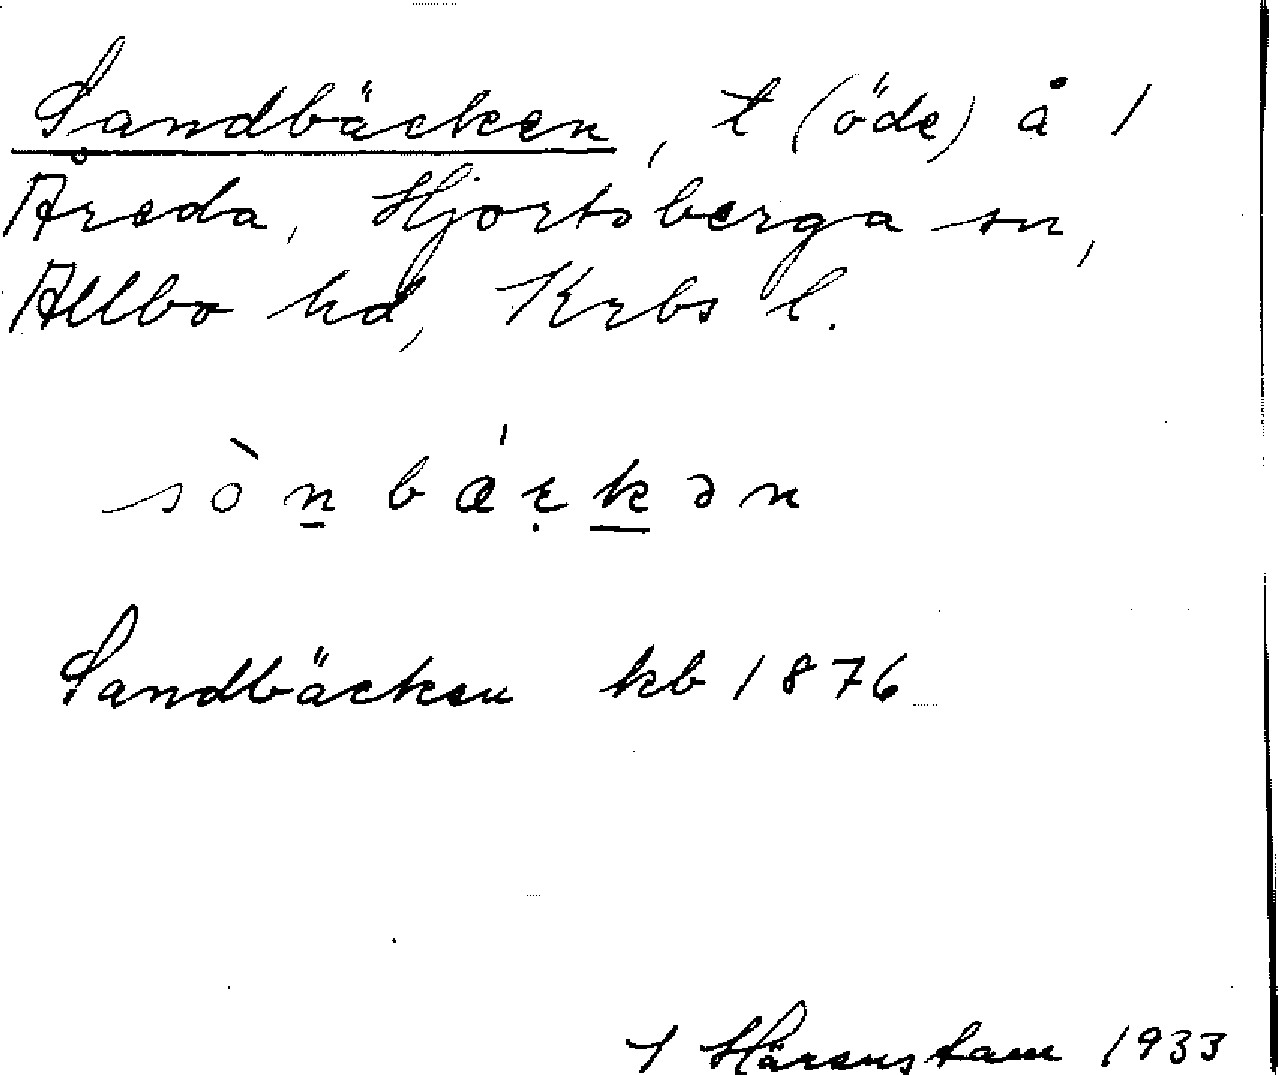 Sandbäcken, t (öde) å 1
Åreda, Hjortsberga sn,
Allbo hd, Krbs l.
sònbáckən
Sandbäcken kb 1876
Härenstam 1933